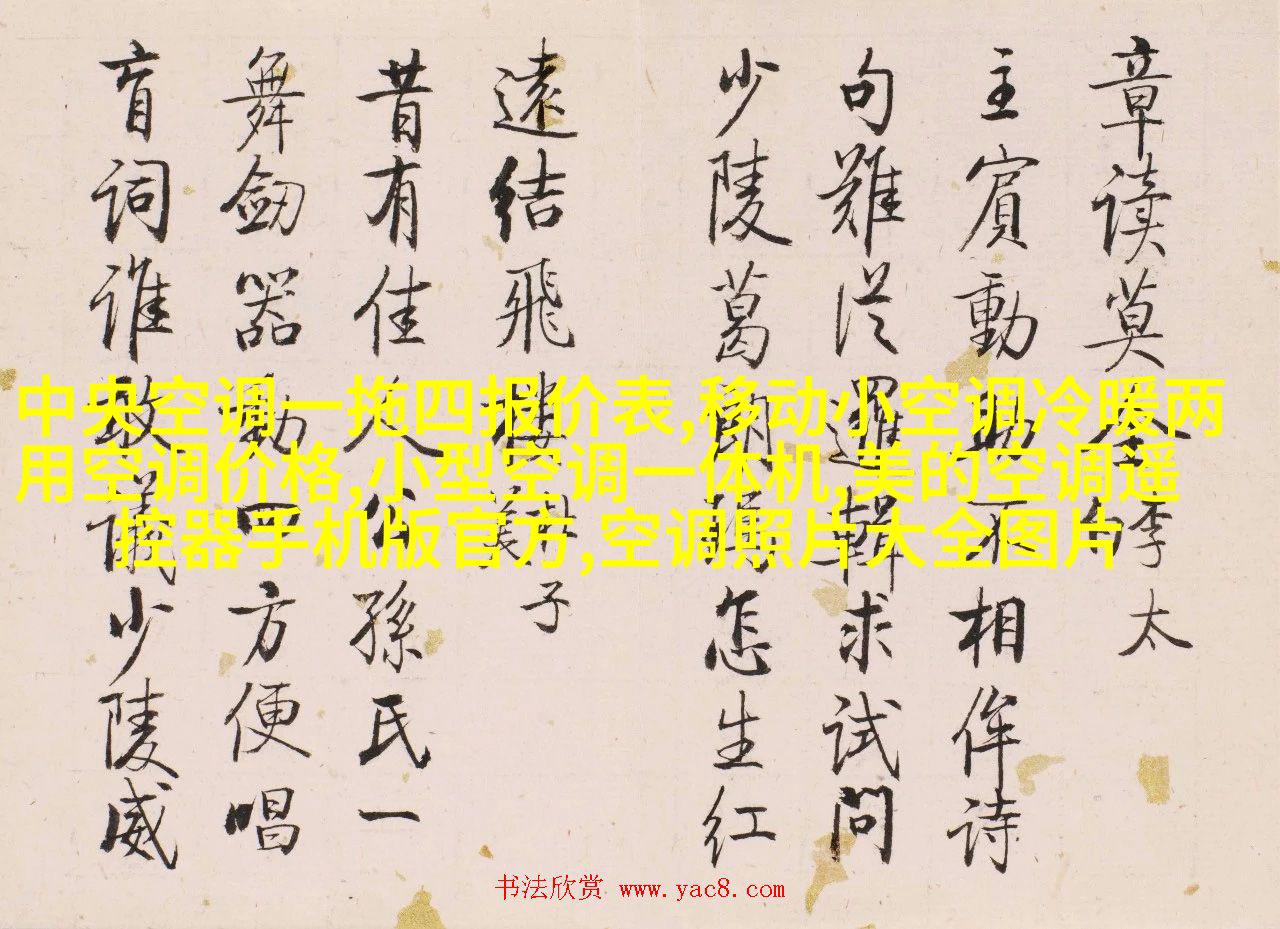 章读莫全李太
主賓動輒不相侔诗
句難從邏輯求試問
少陵葛郎瑪怎生红
遠結飛樓子
昔有佳人公孫氏一
舞劒器動四方便唱
盲词谁敢議少陵威
中央空调一拖四报价表,移动小空调冷暖两
用空调价格,小型空调一体机,美的空调遥
控器手机版官方,空调照片大全图片
书法欣赏 www.yac8.com